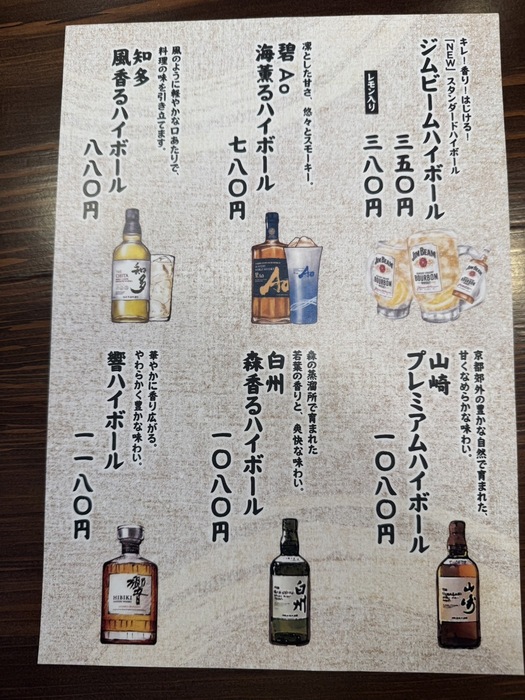 キレ！香り！はじける！
「NEW」スタンダードハイボール
ジムビームハイボール
三五〇円
レモン入り
三八〇円
凜とした甘さ、悠々とスモーキー。
碧Ao
海薫るハイボール
七八〇円
風のように軽やかな口あたりで、
料理の味を引き立てます。
知多
風香るハイボール
八八〇円
JIM BEAM
BOURBON
JIM BEAM
BOURBON
JIM BEAM
BOURBON
Ao
Ao
知多
京都郊外の豊かな自然で育まれた、
甘くなめらかな味わい。
山崎
プレミアムハイボール
一〇八〇円
森の蒸溜所で育まれた
若葉の香りと、爽快な味わい。
白州
森香るハイボール
一〇八〇円
華やかに香り広がる。
やわらかく豊かな味わい。
響ハイボール
一一八〇円
山崎
白州
響
HIBIKI